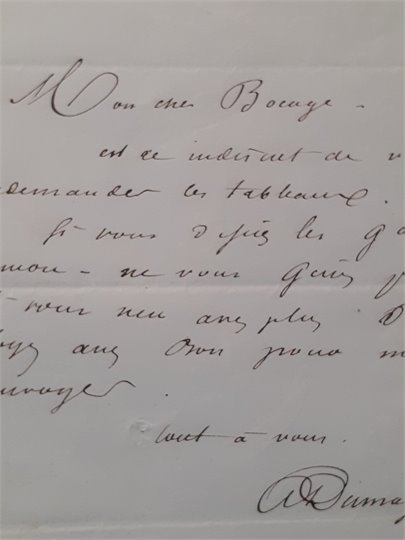 Mon cher Bocage -
est ce indiscret de v
demander les tableaux.
Si vous desirez les g
mou - ne vous genez p
vous n'en avez plus. S
oyez assez bon pour m
envoyer.
tout à vous.
A Dumas